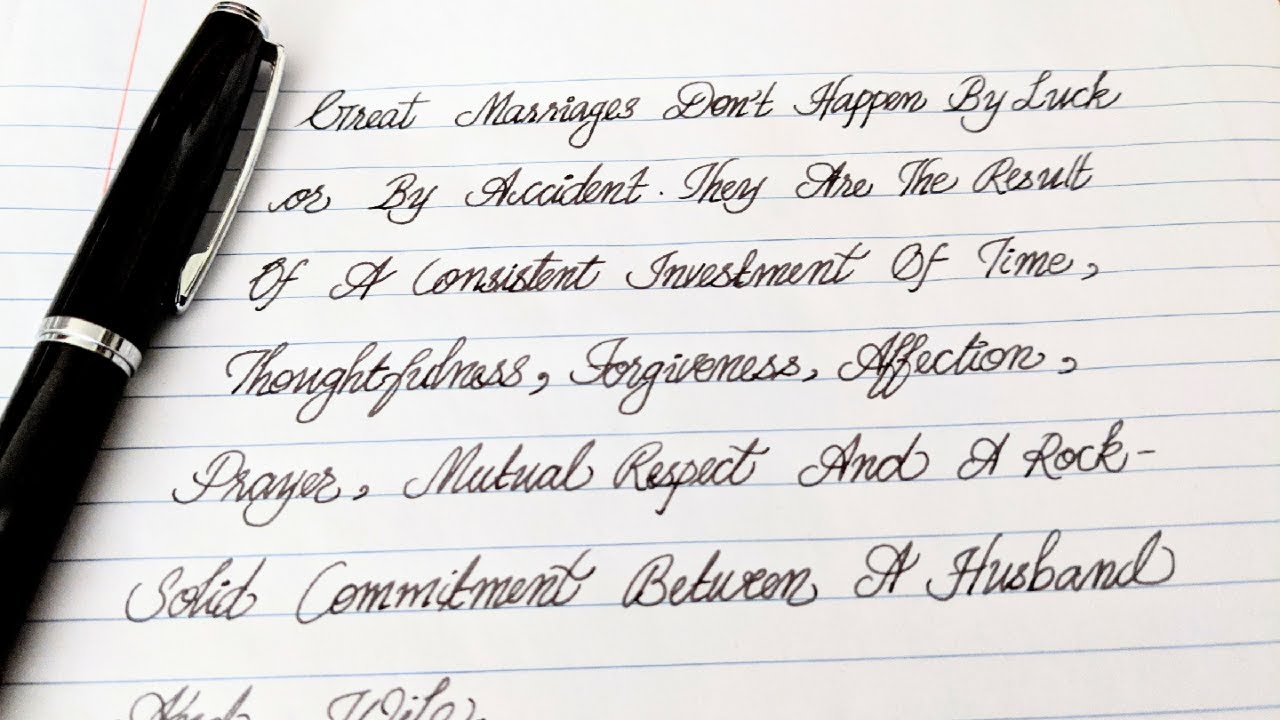 Great Marriages Don't Happen By Luck
or By Accident. They Are The Result
Of A Consistent Investment Of Time,
Thoughtfulness, Forgiveness, Affection,
Prayer, Mutual Respect And A Rock-
Solid Commitment Between A Husband
And Wife